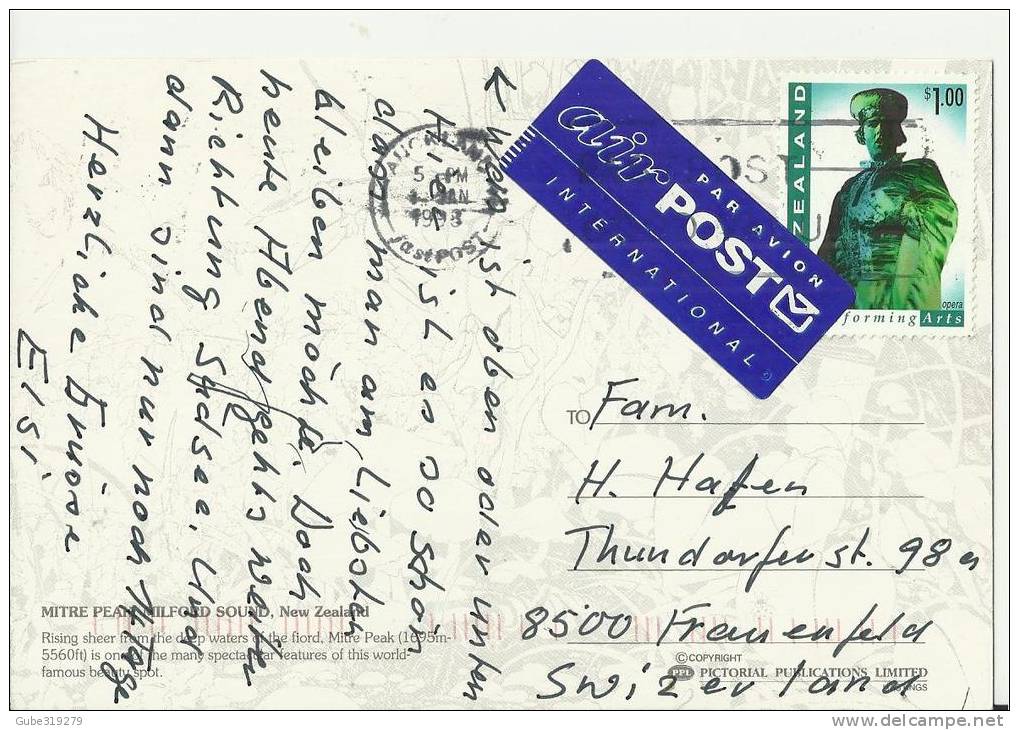 ← Wen ist oben oder unten
Hier ist es so schön
dass man am Liebsten
bleiben möchte. Doch
heute Abend gehts weiter
Richtung Südsee. Und
dann sind nur noch 14 Tage
Herzliche Grüsse
Elsi
air POST
PAR AVION
INTERNATIONAL
5 PM
JAN
FastPOST
$1.00
ZEALAND
opera
forming Arts
TO Fam.
H. Hafen
Thundorferst. 98a
8500 Frauenfeld
Swizerland
MITRE PEAK, MILFORD SOUND, New Zealand
Rising sheer from the deep waters of the fiord, Mitre Peak (1695m-
5560ft) is one of the many spectacular features of this world-
famous beauty spot.
© COPYRIGHT
PPL PICTORIAL PUBLICATIONS LIMITED
HASTINGS
Gube319279
www.delcampe.net